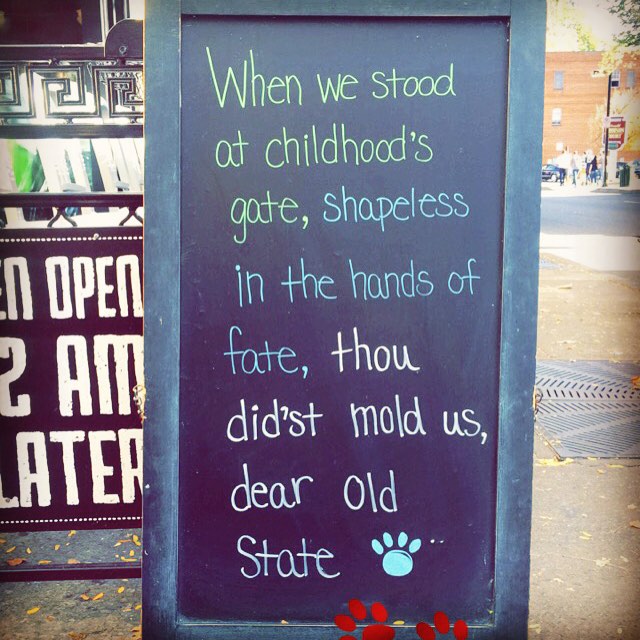 When we stood
at childhood's
gate, shapeless
in the hands of
fate, thou
did'st mold us,
dear old
State
EN OPEN
2 AM
LATER